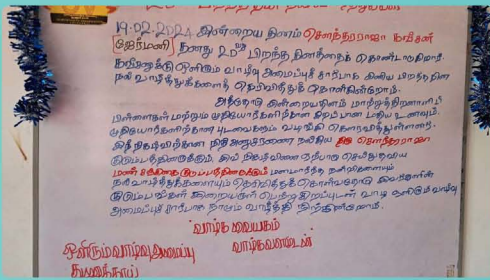 19.02.2024 அன்றைய தினம் சௌந்தரராஜா கவிசன்
(ஜேர்மனி) தனது 20வது பிறந்த தினத்தைக் கொண்டாடுகிறார்.
ஒளிரும் வாழ்வு அமைப்புச் சார்பாக இனிய பிறந்ததின
நல் வாழ்த்துக்களைத் தெரிவித்துக் கொள்கின்றோம்.
அத்தோடு இன்றையதினம் மாற்றுத்திறனாளிப்
பிள்ளைகள் மற்றும் முதியோர்களிற்கான சிறப்பான மதிய உணவும்
முதியோர்களிற்கான புடவைகளும் வழங்கி கௌரவித்துள்ளனர்.
அந் நிகழ்விற்கான நிதி அனுசரணை நல்கிய திரு சௌந்தரராஜா
குடும்பத்தினருக்கும், இவ் நிகழ்வினை ஏற்பாடு செய்து தந்த
குடும்பத்தினருக்கும் மனமார்ந்த நன்றிகளையும்
நல் வாழ்த்துக்களையும் தெரிவித்துக்கொள்வதோடு இவர்களின்
குடும்பங்கள் இறையருள் பெற்று சிறப்புடன் வாழ ஒளிரும் வாழ்வு
அமைப்புச் சார்பாக நாமும் வாழ்த்தி நிற்கின்றோம்.
வாழ்க வையகம்
ஒளிரும் வாழ்வு அமைப்பு வாழ்க வளமுடன்